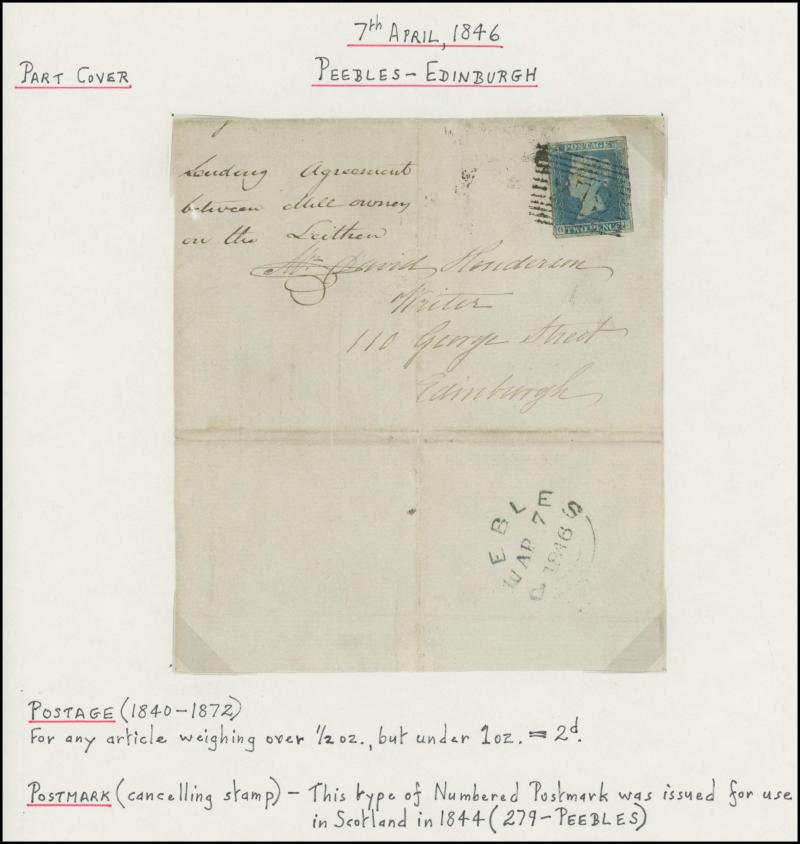 7th APRIL, 1846
PART COVER
PEEBLES - EDINBURGH
Lending Agreement
between Mill owners
on the Leithen
Mr. David Henderson
Writer
110 George Street
Edinburgh
POSTAGE
TWO PENCE
PEEBLES
AP 7
1846
POSTAGE (1840-1872)
For any article weighing over ½ oz., but under 1 oz. = 2d.
POSTMARK (cancelling stamp) - This type of Numbered Postmark was issued for use
in Scotland in 1844 (279-PEEBLES)